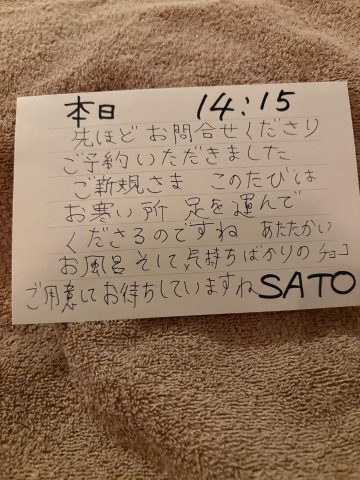 本日 14:15
先ほど お問合せくださり
ご予約いただきました
ご新規さま このたびは
お寒い所 足を運んで
くださるのですね あたたかい
お風呂 そして 気持ちばかりの チョコ
ご用意して お待ちしていますね SATO